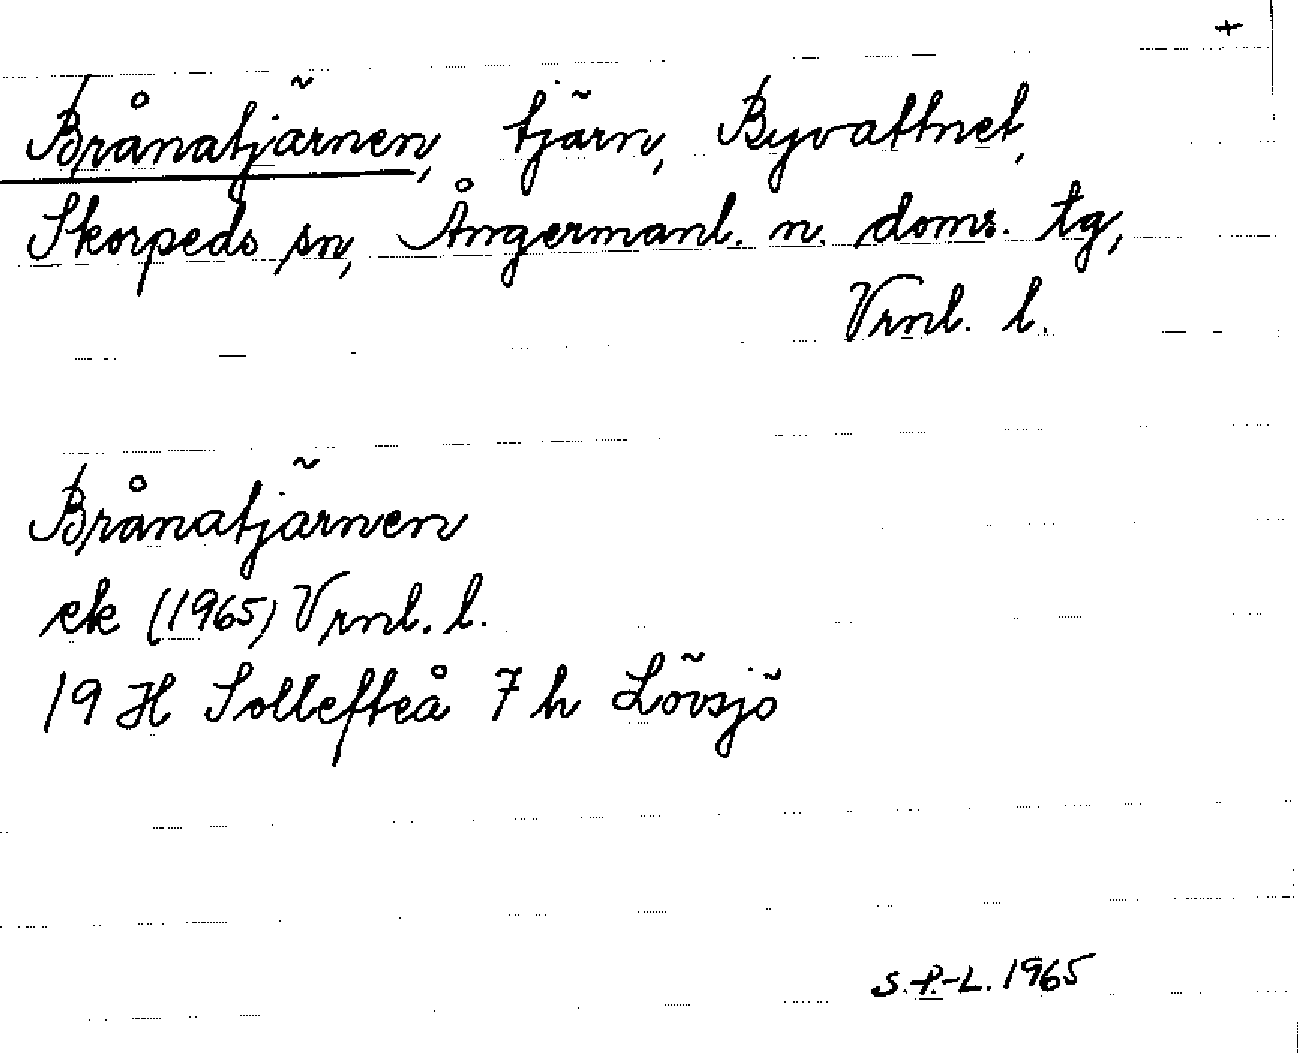 +
Brånatjärnen, tjärn, Byvattnet,
Skorpeds sn, Ångermanl. n. doms. tg,
Vrnl. l.
Brånatjärnen
ek (1965) Vrnl. l.
19 H Sollefteå 7 h Lövsjö
S.P-L. 1965